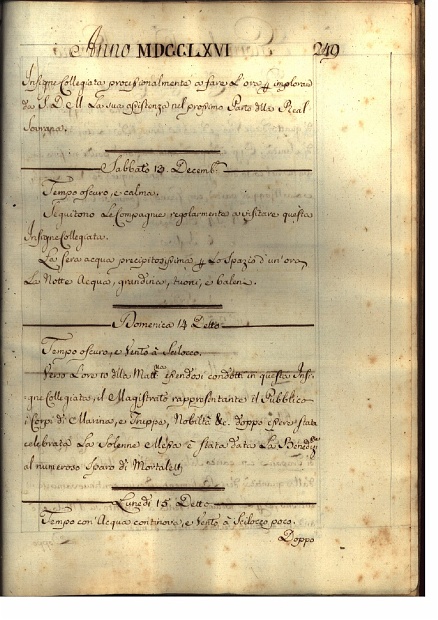 Anno MDCCLXVI 249
Insigne Collegiata processionalmente a fare l'ora p implorar
da S. D. M. La sua assistenza nel prossimo Parto della Real
Sovrana.
Sabbato 13. Decemb.
Tempo oscuro, e calma.
Seguitono Le Compagnie regolarmente a visitare questa
Insigne Collegiata.
La sera acqua precipitosissima p Lo Spazio d'un'ora
La Notte Acqua, grandina, tuoni, e baleni.
Domenica 14 Detto
Tempo oscuro, e Vento à Scilocco.
Verso L'ore 10 della Matt.na essendosi condotti in questa Insi-
gne Collegiata, il Magistrato rappresentante il Pubblico
i Corpi di Marina, e Truppa, Nobiltà &c. doppo essere stata
celebrata La Solenne Messa è stata data La Bened.ne
al numeroso Sparo di Mortaletti
Lunedì 15. Detto
Tempo con Acqua continova, e Vento à Scilocco poco.
Doppo